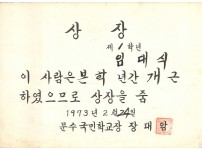 상 장
제1학년
임대식
이 사람은 본 학년간 개근
하였으므로 상장을 줌
1973年 2월 24일
문수국민학교장 장대암